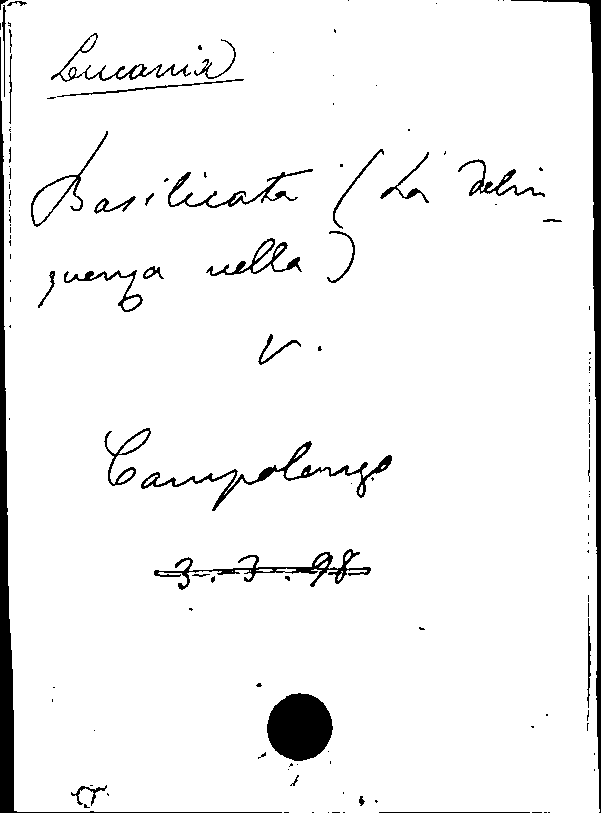 Lucania
Basilicata (La delin-
quenza nella)
v.
Campolongo
3.3.98